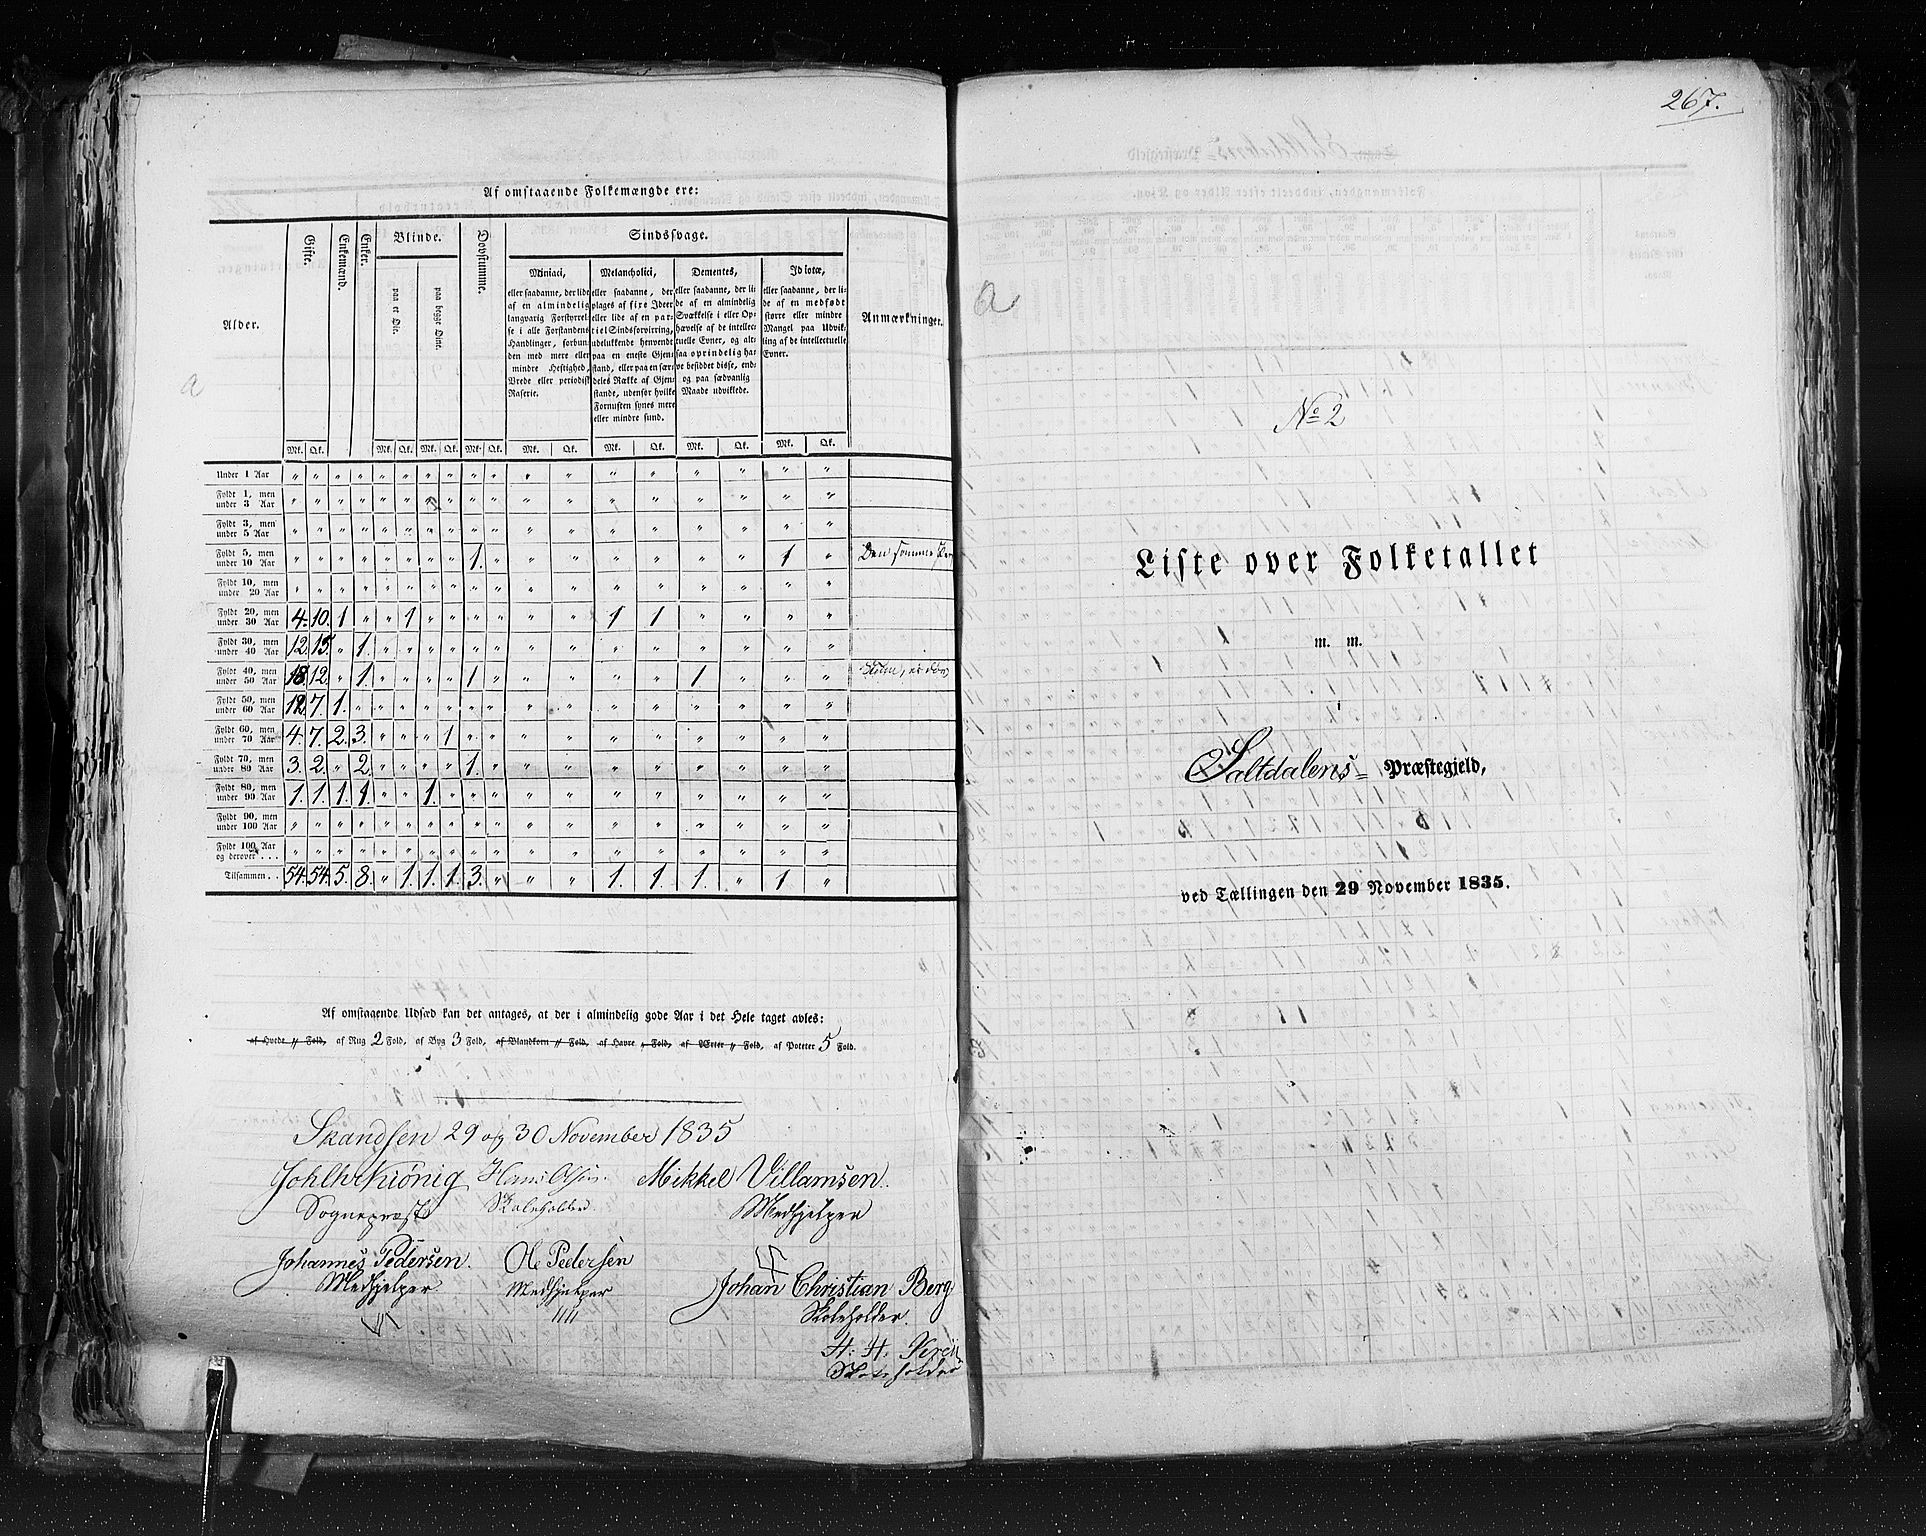 Af omstaaende Folkemængde ere:
Alder. Gifte. Enkemænd. Enker. Blinde. Dovstumme. Sindssvage. Anmærkninger.
paa et Øie. paa begge Øine.
Maniaci,
eller saadanne, der lide
af en almindelig
langvarig Forstyrrel-
se i alle Forstandens
Handlinger, forbun-
den med mere eller
mindre Heftighed,
Vrede eller periodisk
Raserie.
Melancholici,
eller saadanne, der
plages af fixe Ideer
eller lide af en par-
tiel Sindsforvirring,
udelukkende henvendt
paa en eneste Gjen-
stand, eller paa en sær-
deles Række af Gjen-
stande, udenfor hvilke
Fornuften synes mere
eller mindre sund.
Dementes,
eller saadanne, der li-
de af en almindelig
Svækkelse i eller Op-
hævelse af de intellec-
tuelle Evner, og al-
saa oprindelig ha-
ve besiddet disse, end-
og paa sædvanlig
Maade udviklede.
Idiotæ,
eller saadanne, der li-
de af en medfødt
større eller mindre
Mangel paa Udvik-
ling af de intellectuelle
Evner.
Mk. Qk. Mk. Qk. Mk. Qk. Mk. Qk. Mk. Qk. Mk. Qk. Mk. Qk. Mk. Qk.
Under 1 Aar " " " " " " " " " " " " " " " " " "
Fyldt 1, men under 3 Aar " " " " " " " " " " " " " " " " " "
Fyldt 3, men under 5 Aar " " " " " " " " " " " " " " " " " "
Fyldt 5, men under 10 Aar " " " " " " " " 1. " " " " " " " 1 " Den samme
Fyldt 10, men under 20 Aar " " " " " " " " " " " " " " " " " "
Fyldt 20, men under 30 Aar 4. 10. 1 " " 1 " " " " " " 1 1 " " " "
Fyldt 30, men under 40 Aar 12. 15. " 1. " " " " " " " " " " " " " "
Fyldt 40, men under 50 Aar 18. 12. " 1. " " " " 1 " " " " " 1 " " "
Fyldt 50, men under 60 Aar 12. 7. 1. " " " " " " " " " " " " " " "
Fyldt 60, men under 70 Aar 4. 7. 2. 3. " " " 1 " " " " " " " " " "
Fyldt 70, men under 80 Aar 3. 2. " 2. " " " " 1. " " " " " " " " "
Fyldt 80, men under 90 Aar 1. 1. 1. 1. " " 1. " " " " " " " " " " "
Fyldt 90, men under 100 Aar " " " " " " " " " " " " " " " " " "
Fyldt 100 Aar og derover . . . " " " " " " " " " " " " " " " " " "
Tilsammen . . 54. 54. 5. 8. " 1. 1. 1. 3. " " " 1. 1. 1. " 1 "
a
Af omstaaende Udsæd kan det antages, at der i almindelig gode Aar i det Hele taget avles:
af Hvede " Fold, af Rug 2 Fold, af Byg 3 Fold, af Blandkorn " Fold, af Havre " Fold, af Erter " Fold, af Poteter 5 Fold.
Skandsen 29 og 30 November 1835
Hans Olsen Mikkel Villamsen.
Sognepræst Skoleholder. Medhjelper
Johannes Pedersen. Ole Pedersen
Medhjelper Medhjelper
Johan Christian Berg
Skoleholder.
H. H.
Skoleholder
267.
a
No 2
Liste over Folketallet
m. m.
Saltdalens Præstegjeld,
ved Tællingen den 29 November 1835.